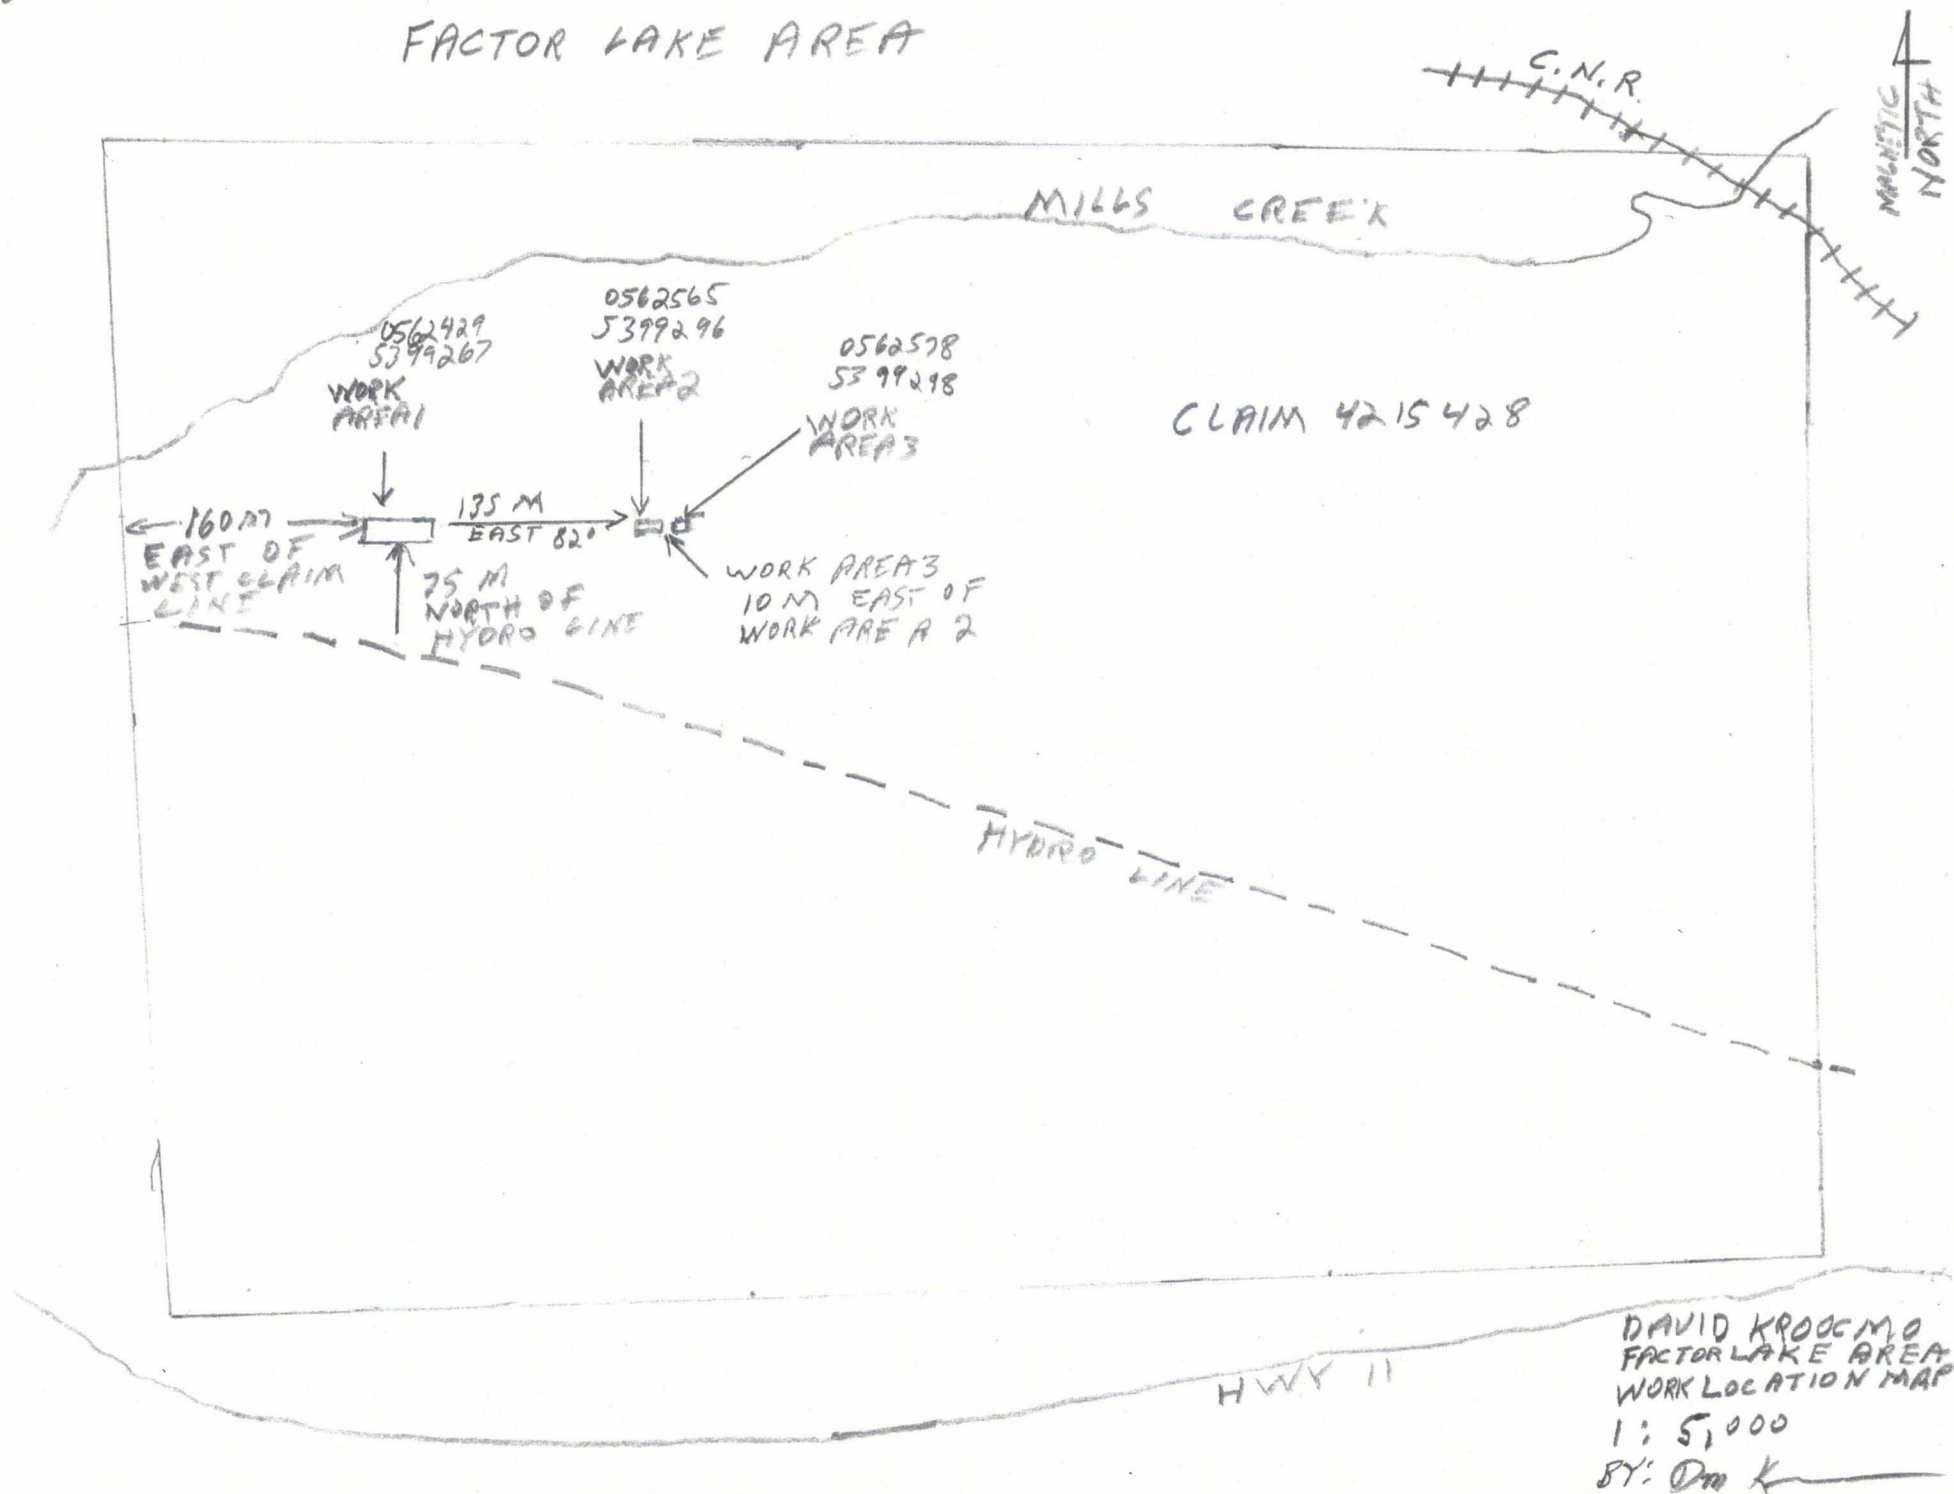 FACTOR LAKE AREA
C.N.R.
MAGNETIC
NORTH
MILLS CREEK
0562429
5399267
WORK
AREA1
0562565
5399296
WORK
AREA2
0562578
5399298
WORK
AREA3
CLAIM 4215428
160 M
EAST OF
WEST CLAIM
LINE
135 M
EAST 82°
75 M
NORTH OF
HYDRO LINE
WORK AREA3
10 M EAST OF
WORK AREA 2
HYDRO LINE
HWY 11
DAVID
FACTOR LAKE AREA
WORK LOCATION MAP
1: 5,000
BY: